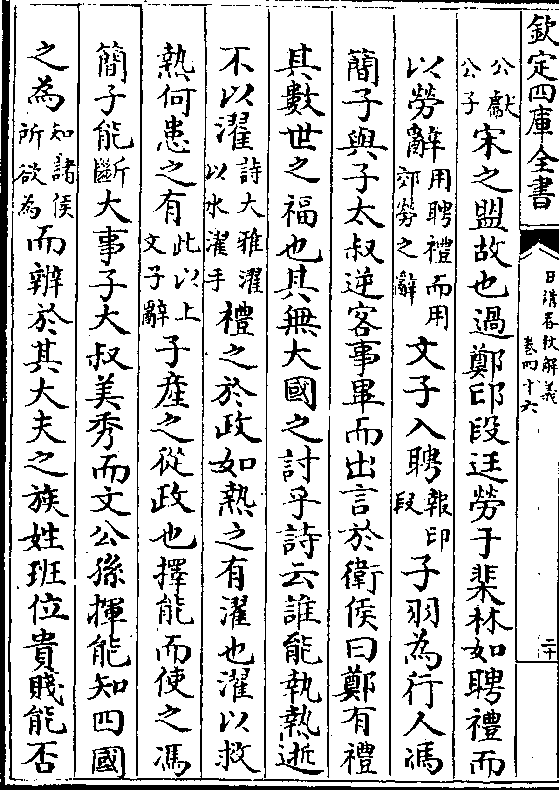 欽定四庫全書
日講春秋解義
卷四十六
二十
公獻
公子
宋之盟故也過鄭印段迋勞于棐林如聘禮而
以勞辭
用聘禮而用
郊勞之辭
文子入聘
報印
段
子羽為行人馮
簡子與子太叔逆客事畢而出言於衛侯曰鄭有禮
其數世之福也其無大國之討乎詩云誰能執熱逝
不以濯
詩大雅濯
以水濯手
禮之於政如熱之有濯也濯以救
熱何患之有
此以上
文子辭
子產之從政也擇能而使之馮
簡子能斷大事子大叔美秀而文公孫揮能知四國
之為
知諸侯
所欲為
而辨於其大夫之族姓班位貴賤能否